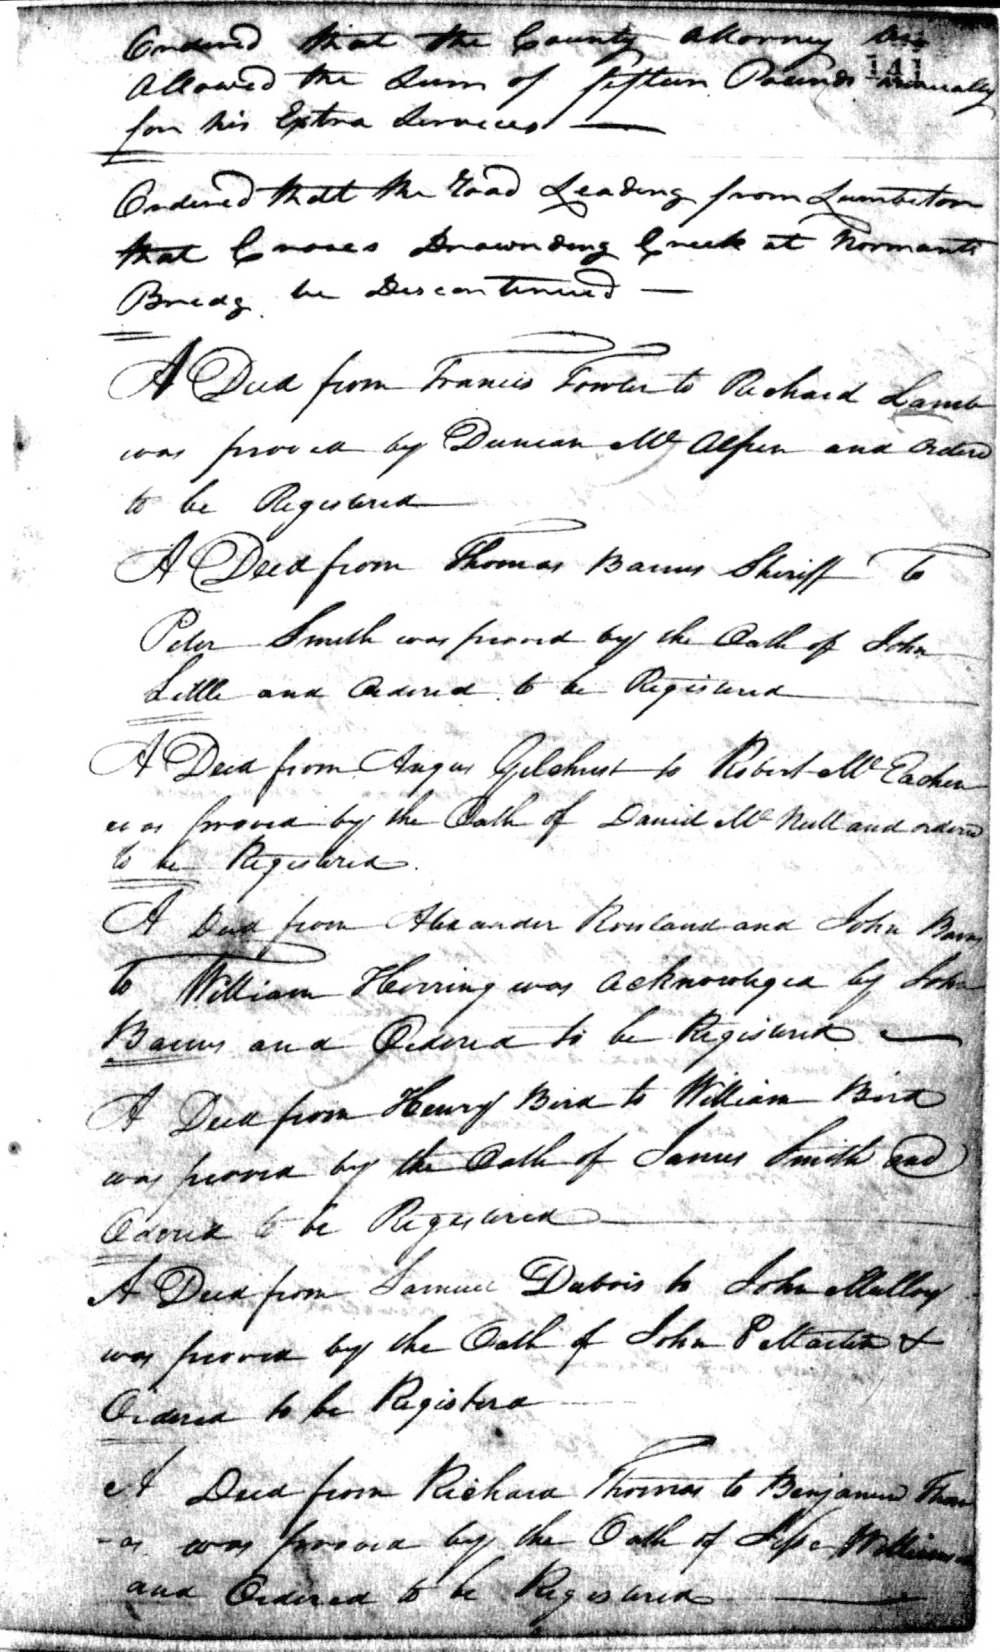 Ordered that the County Attorney be
141
Allowed the Sum of fifteen Pounds annually
for his Extra Services
Ordered that the road Leading from Lumberton
that Croses Drownding Creek at Normants
Bredg be Descontinued
A Deed from Francis Fowler to Richard Lamb
was proved by Duncan Mc Alpin and Ordered
to be Registered
A Deed from Thomas Barnes Sheriff To
Peter Smith was proved by the Oath of John
Little and Ordered to be Registered
A Deed from Angus Gilchrist to Robert Mc Eachen
was proved by the Oath of Daniel Mc Neill and ordered
to be Registered
A Deed from Alexander Rowland and John Barnes
to William Herring was acknowleged by John
Barnes and Ordered to be Registered
A Deed from Henry Bird to William Bird
was proved by the Oath of James Smith and
Ordered to be Registered
A Deed from Samuel Dubois to John Mulloy
was proved by the Oath of John P Martin &
Ordered to be Registerd
A Deed from Richard Thomas to Benjamin Thom
-as was proved by the Oath of Jesse Williams
and Ordered to be Registered